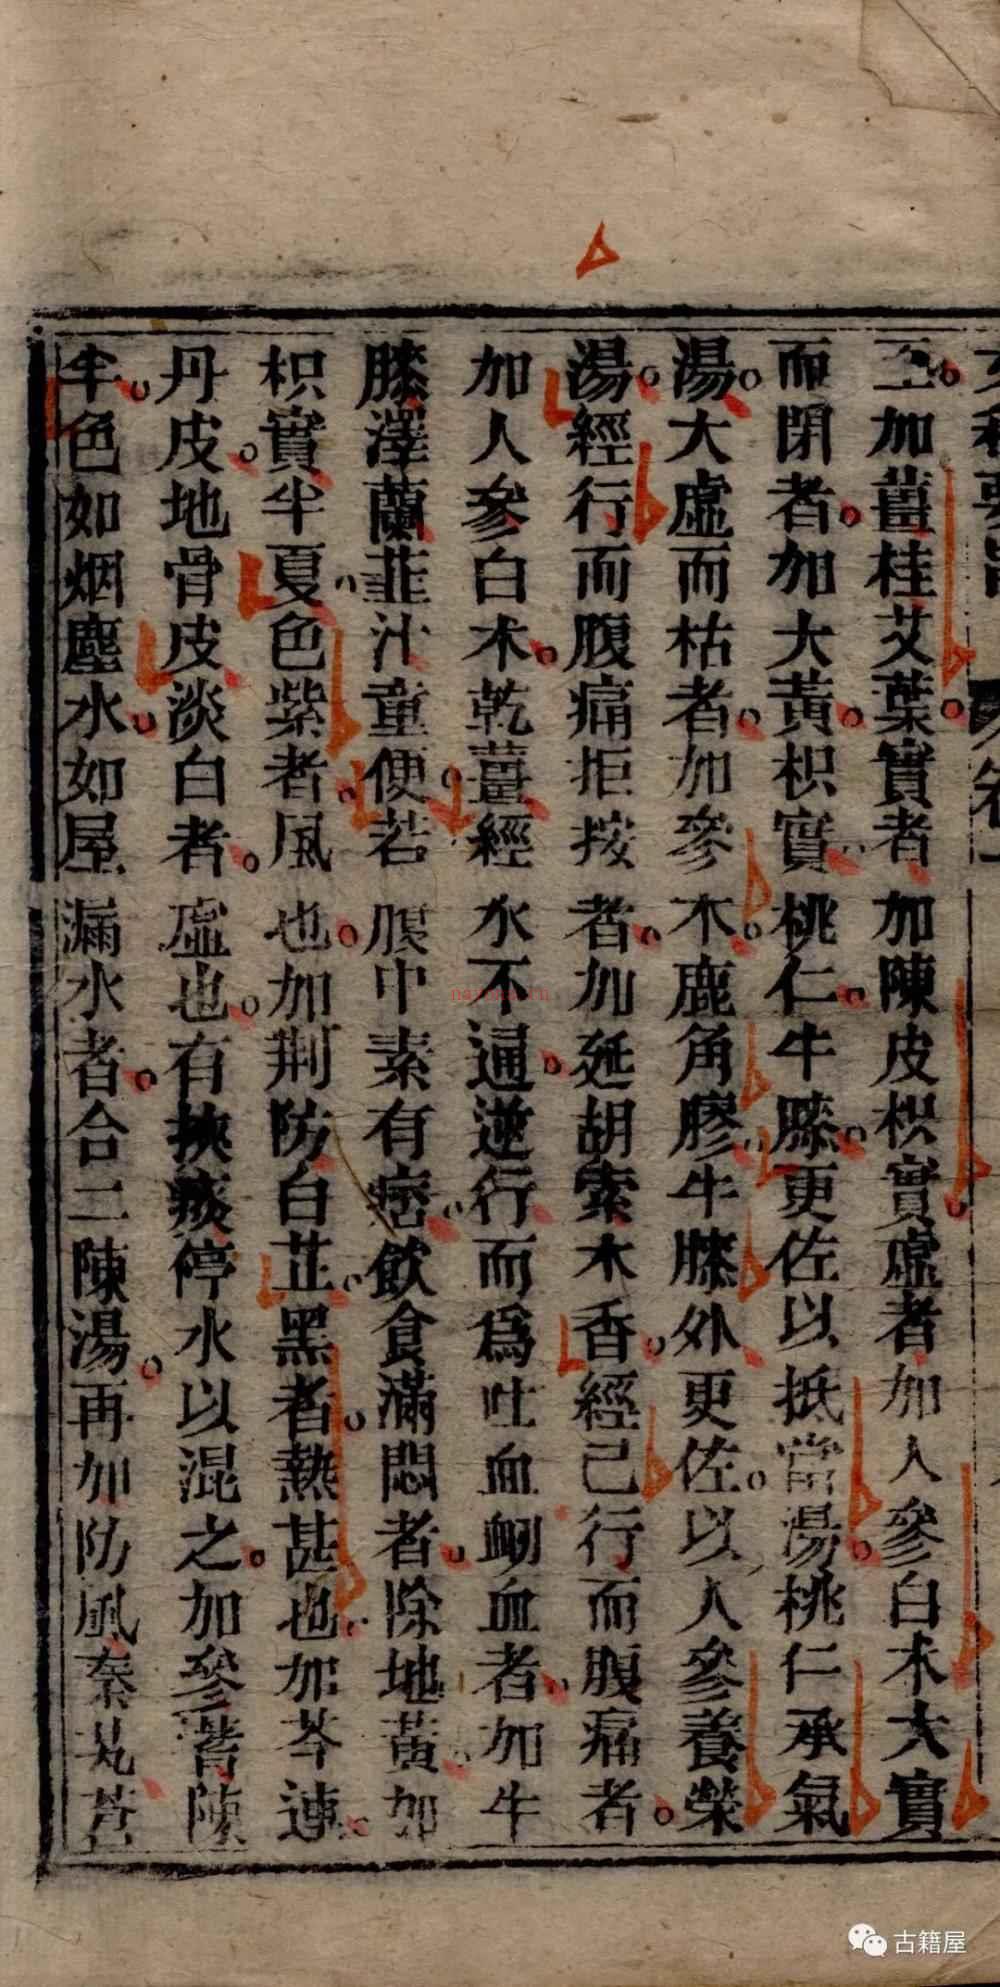 女科要旨 卷一
至加薑桂艾葉實者加陳皮枳實虛者加人參白朮大實
而閉者加大黃枳實桃仁牛膝更佐以抵當湯桃仁承氣
湯大虛而枯者加參朮鹿角膠牛膝外更佐以人參養榮
湯經行而腹痛拒按者加延胡索木香經已行而腹痛者
加人參白朮乾薑經水不通逆行而為吐血衂血者加牛
膝澤蘭韮汁童便若腹中素有痞飲食滿悶者除地黃加
枳實半夏色紫者風也加荊防白芷黑者熱甚也加芩連
丹皮地骨皮淡白者虛也有挾痰停水以混之加參蓍陳
半色如烟塵水如屋漏水者合二陳湯再加防風秦艽蒼
古籍屋